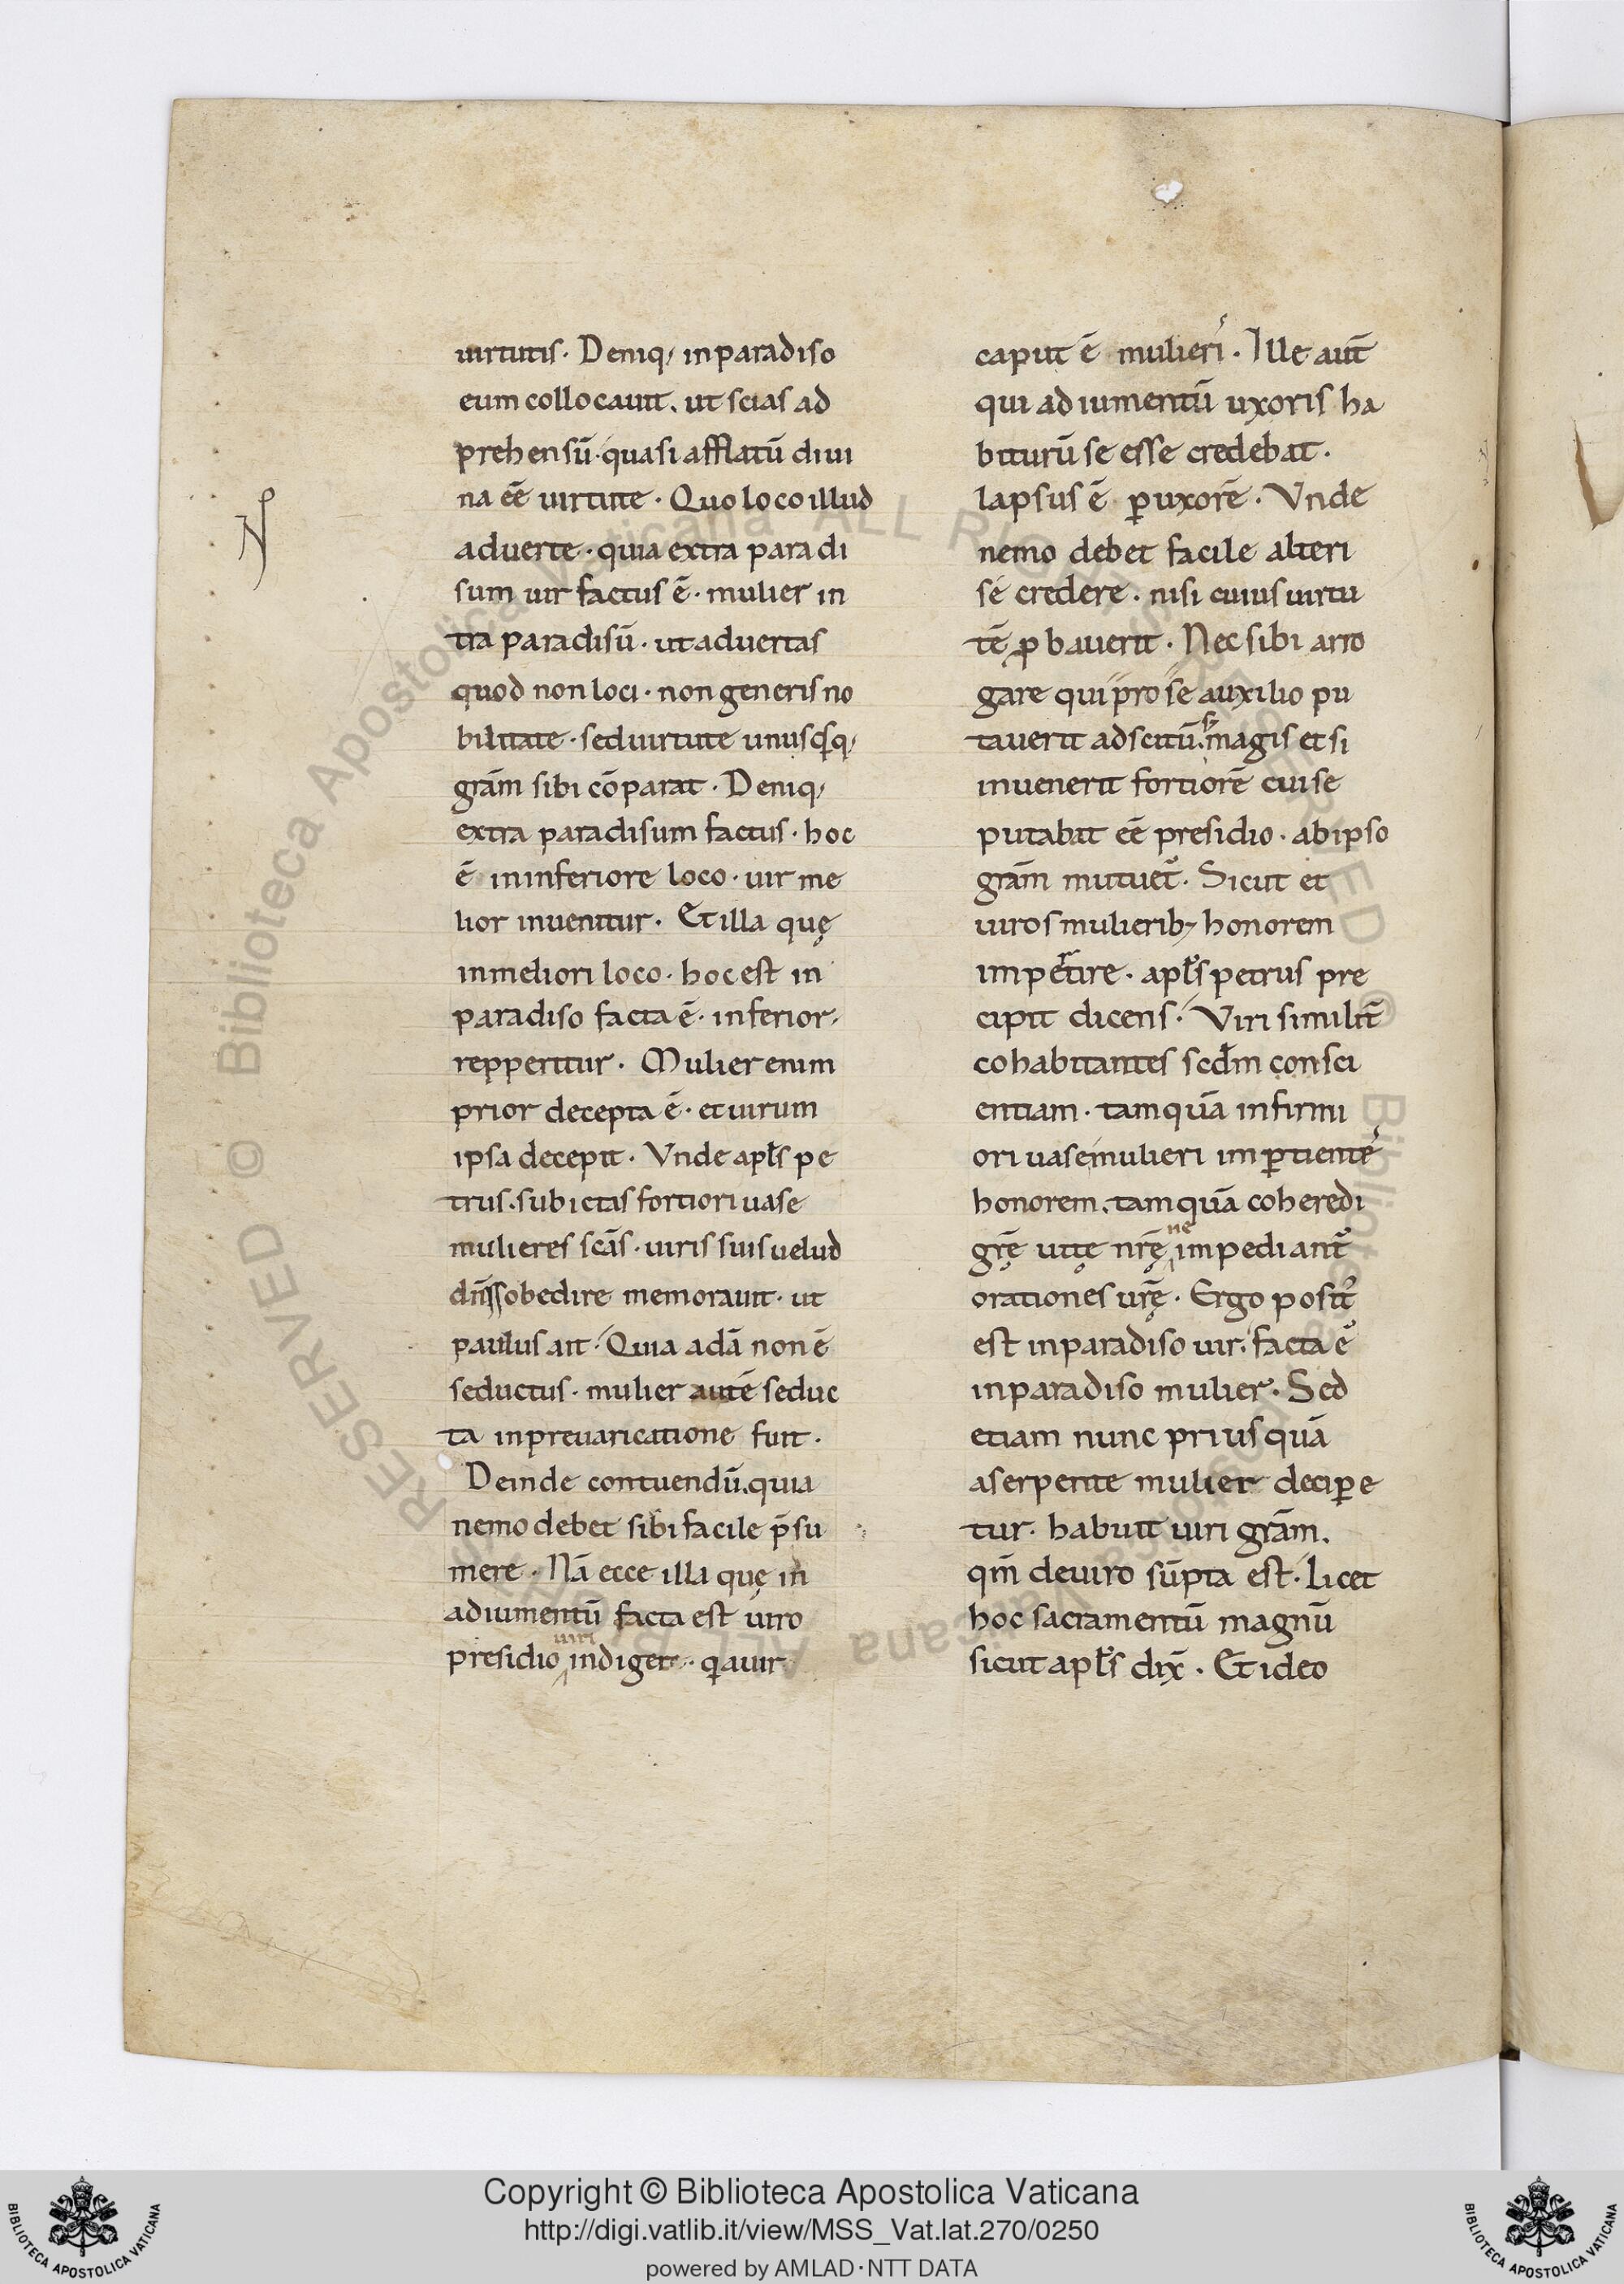 uirtutis· Deniq; inparadiso
eum collocauit. ut scias ad
prehensū· quasi afflatū diui
na eē uirtute· Quo loco illud
aduerte· quia extra paradi
sum uir factus ē· mulier in
tra paradisū· ut aduertas
quod non loci· non generis no
bilitate· sed uirtute unusqsq;
grām sibi cōparat· Deniq;
extra paradisum factus· hoc
ē ininferiore loco· uir me
lior inuenitur· Et illa quę
inmeliori loco· hoc est in
paradiso facta ē· inferior
reppertitur· Mulier enim
prior decepta ē· et uirum
ipsa decepit· Vnde apl̄s pe
trus. subiectas fortiori uase
mulieres scās· uiris suis uelud
dn̄is obedire memorauit· ut
paulus ait· Quia adā non ē
seductus· mulier autē seduc
ta inpreuaricatione fuit·
Deinde contuendū. quia
nemo debet sibi facile p̄su
mere· Nā ecce illa quę in
adiumentū facta est uiro
uiri
presidio indiget· qa uir
caput ē mulieris· Ille aut̄
qui adiumentū uxoris ha
biturū se esse credebat·
lapsus ē ꝑ uxorē· Vnde
nemo debet facile alteri
se credere· nisi cuius uirtu
tē ꝓbauerit· Nec sibi arro
gare qui pro se auxilio pu
tauerit adscitū. s; magis et si
inuenerit fortiorē cui se
putabat eē presidio· ab ipso
grām mutuet̄· Sicut et
uiros mulierib; honorem
impetire· apl̄s petrus pre
cipit dicens· Viri similit̄
cohabitantes scdm̄ consci
entiam· tamquā infirmi
ori uase mulieri imꝑtientes
honorem. tamquā coheredi
ne
grę̄ uitę nrę̄ impediant̄
orationes urę̄· Ergo posit;
est inparadiso uir. facta ē
inparadiso mulier· Sed
etiam nunc priusquā
aserpente mulier deciꝑe
tur· habuit uiri grām.
qm̄ deuiro sūpta est· Licet
hoc sacramentū magnū
sicut apl̄s dix̄· Et ideo
Copyright © Biblioteca Apostolica Vaticana
http://digi.vatlib.it/view/MSS_Vat.lat.270/0250
powered by AMLAD·NTT DATA